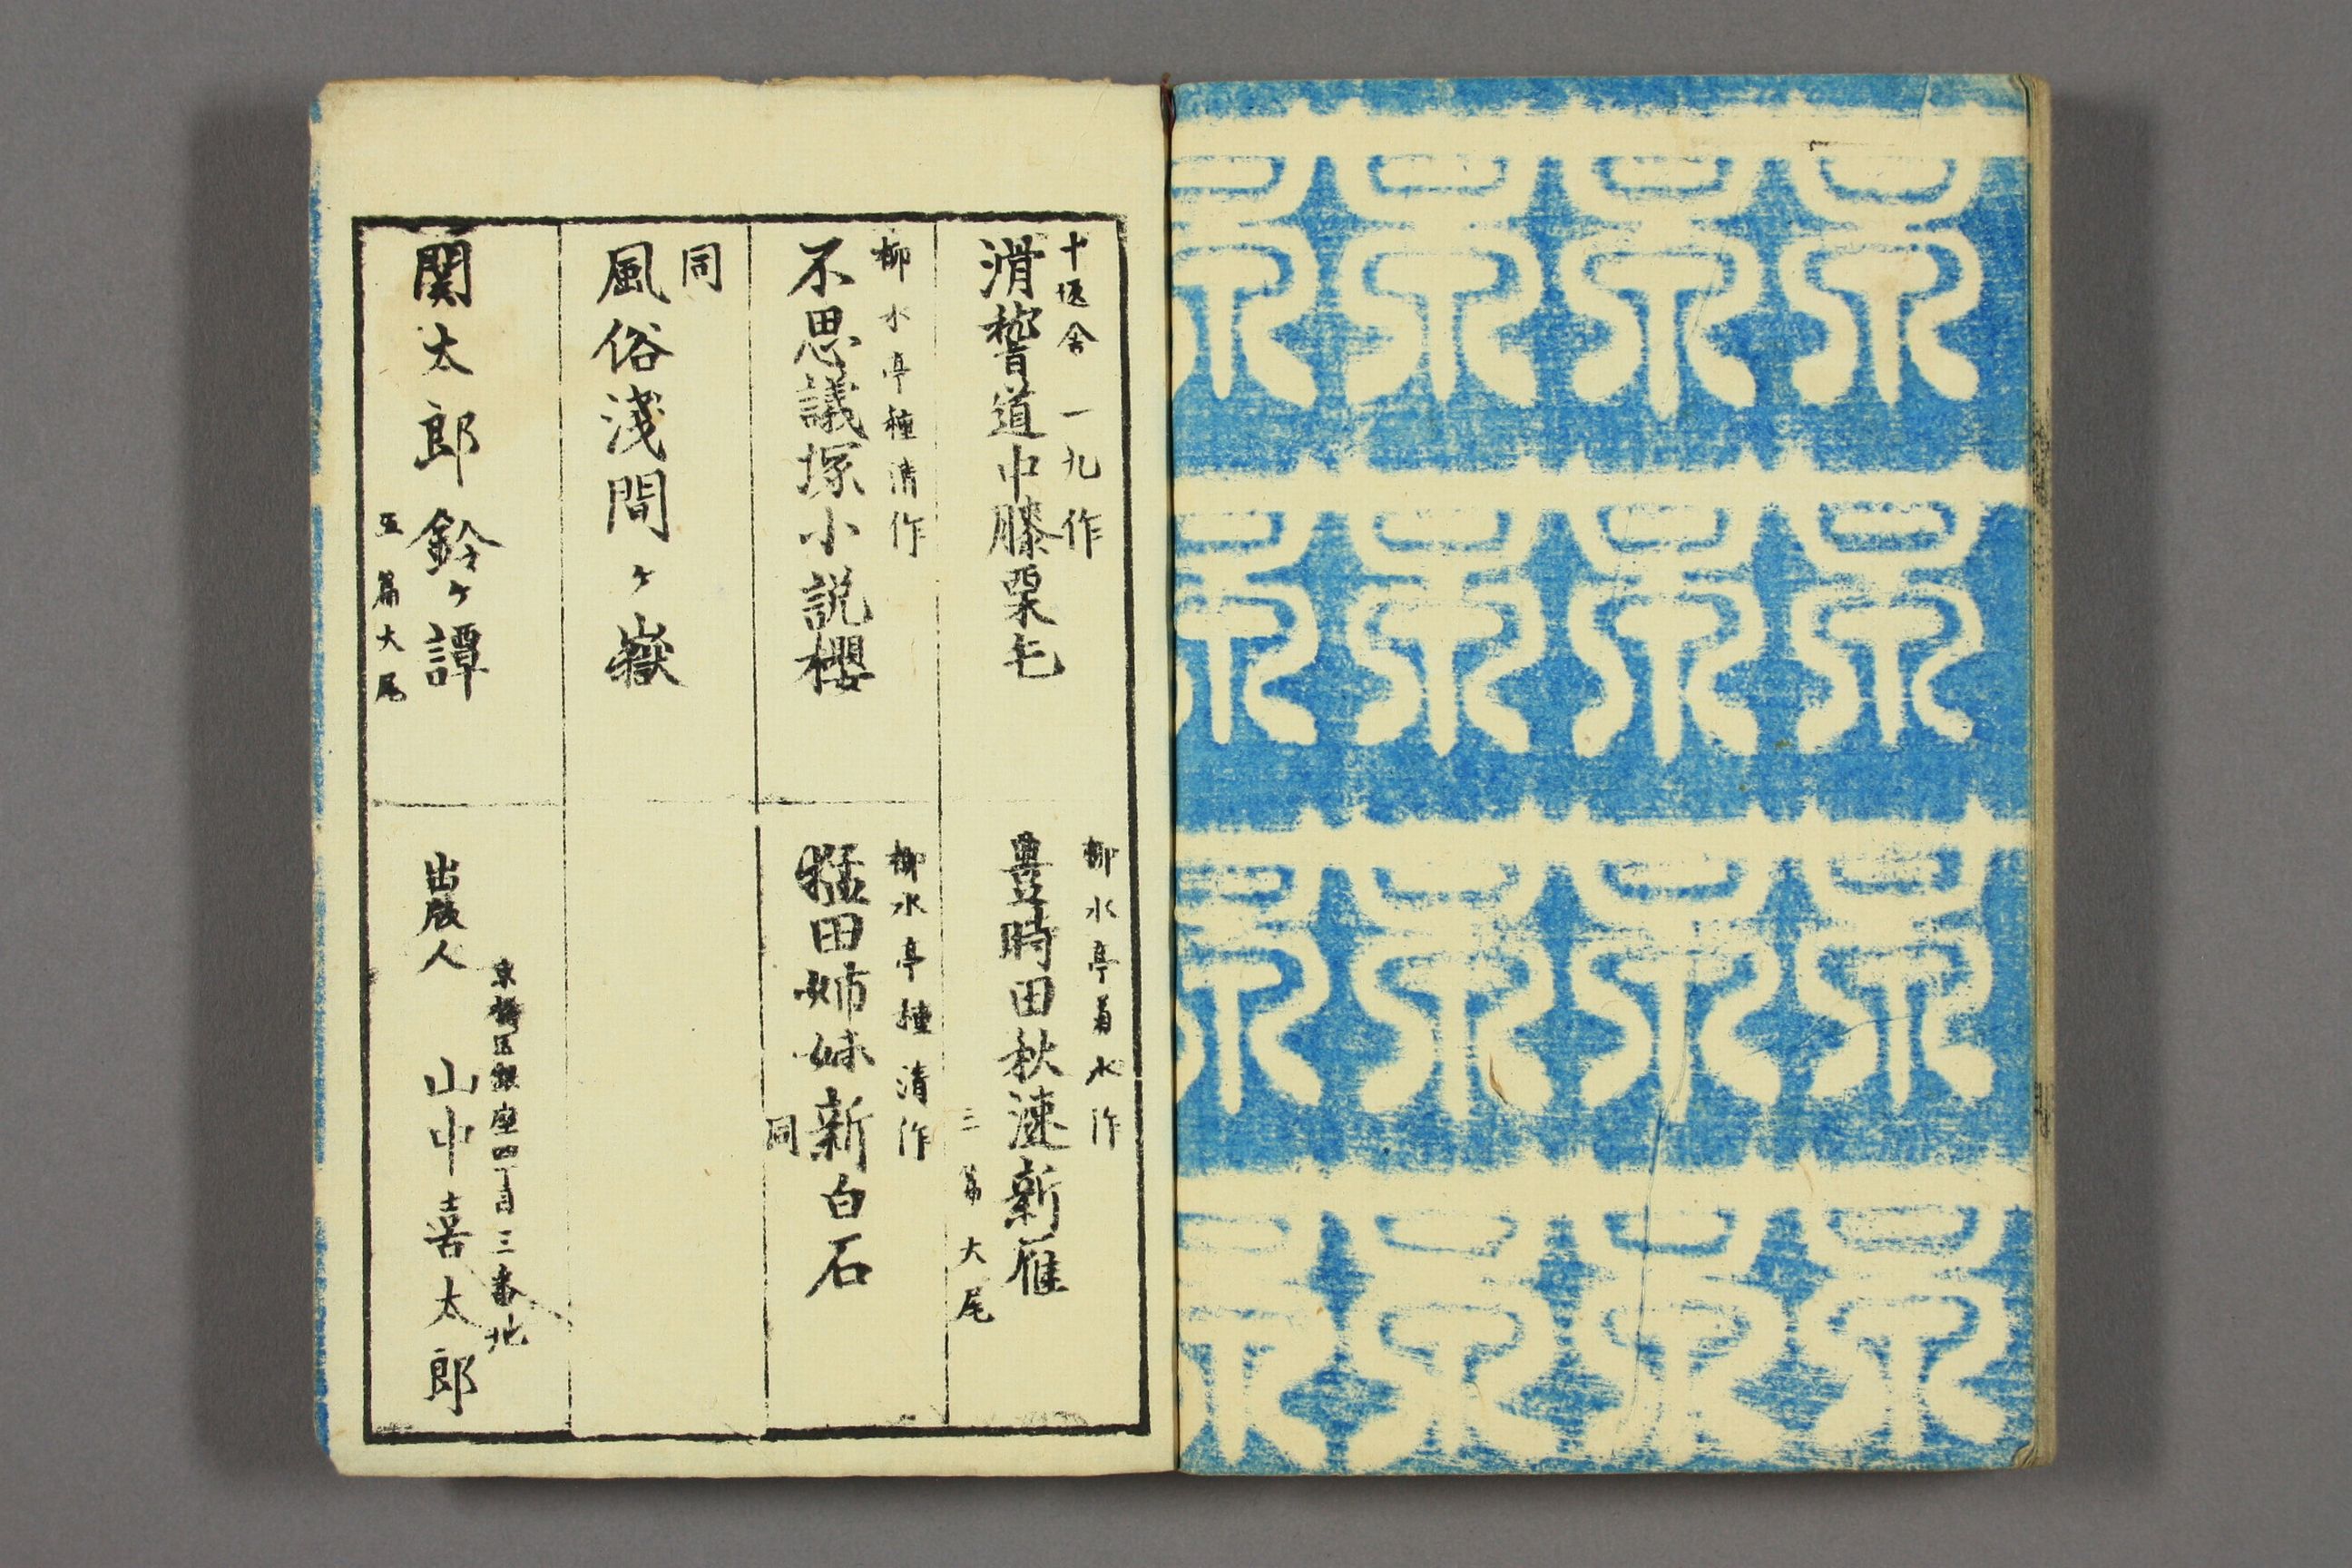 十返舎一九作
滑稽道中膝栗毛
柳水亭菊水作
豊時田秋速新雁
三篇大尾
柳水亭種清作
不思議塚小説櫻
柳水亭種清作
猛田姉妹新白石
同
同
風俗淺間ヶ嶽
関太郎鈴ヶ譚
五篇大尾
京橋区銀座四丁目三番地
出版人 山中喜太郎